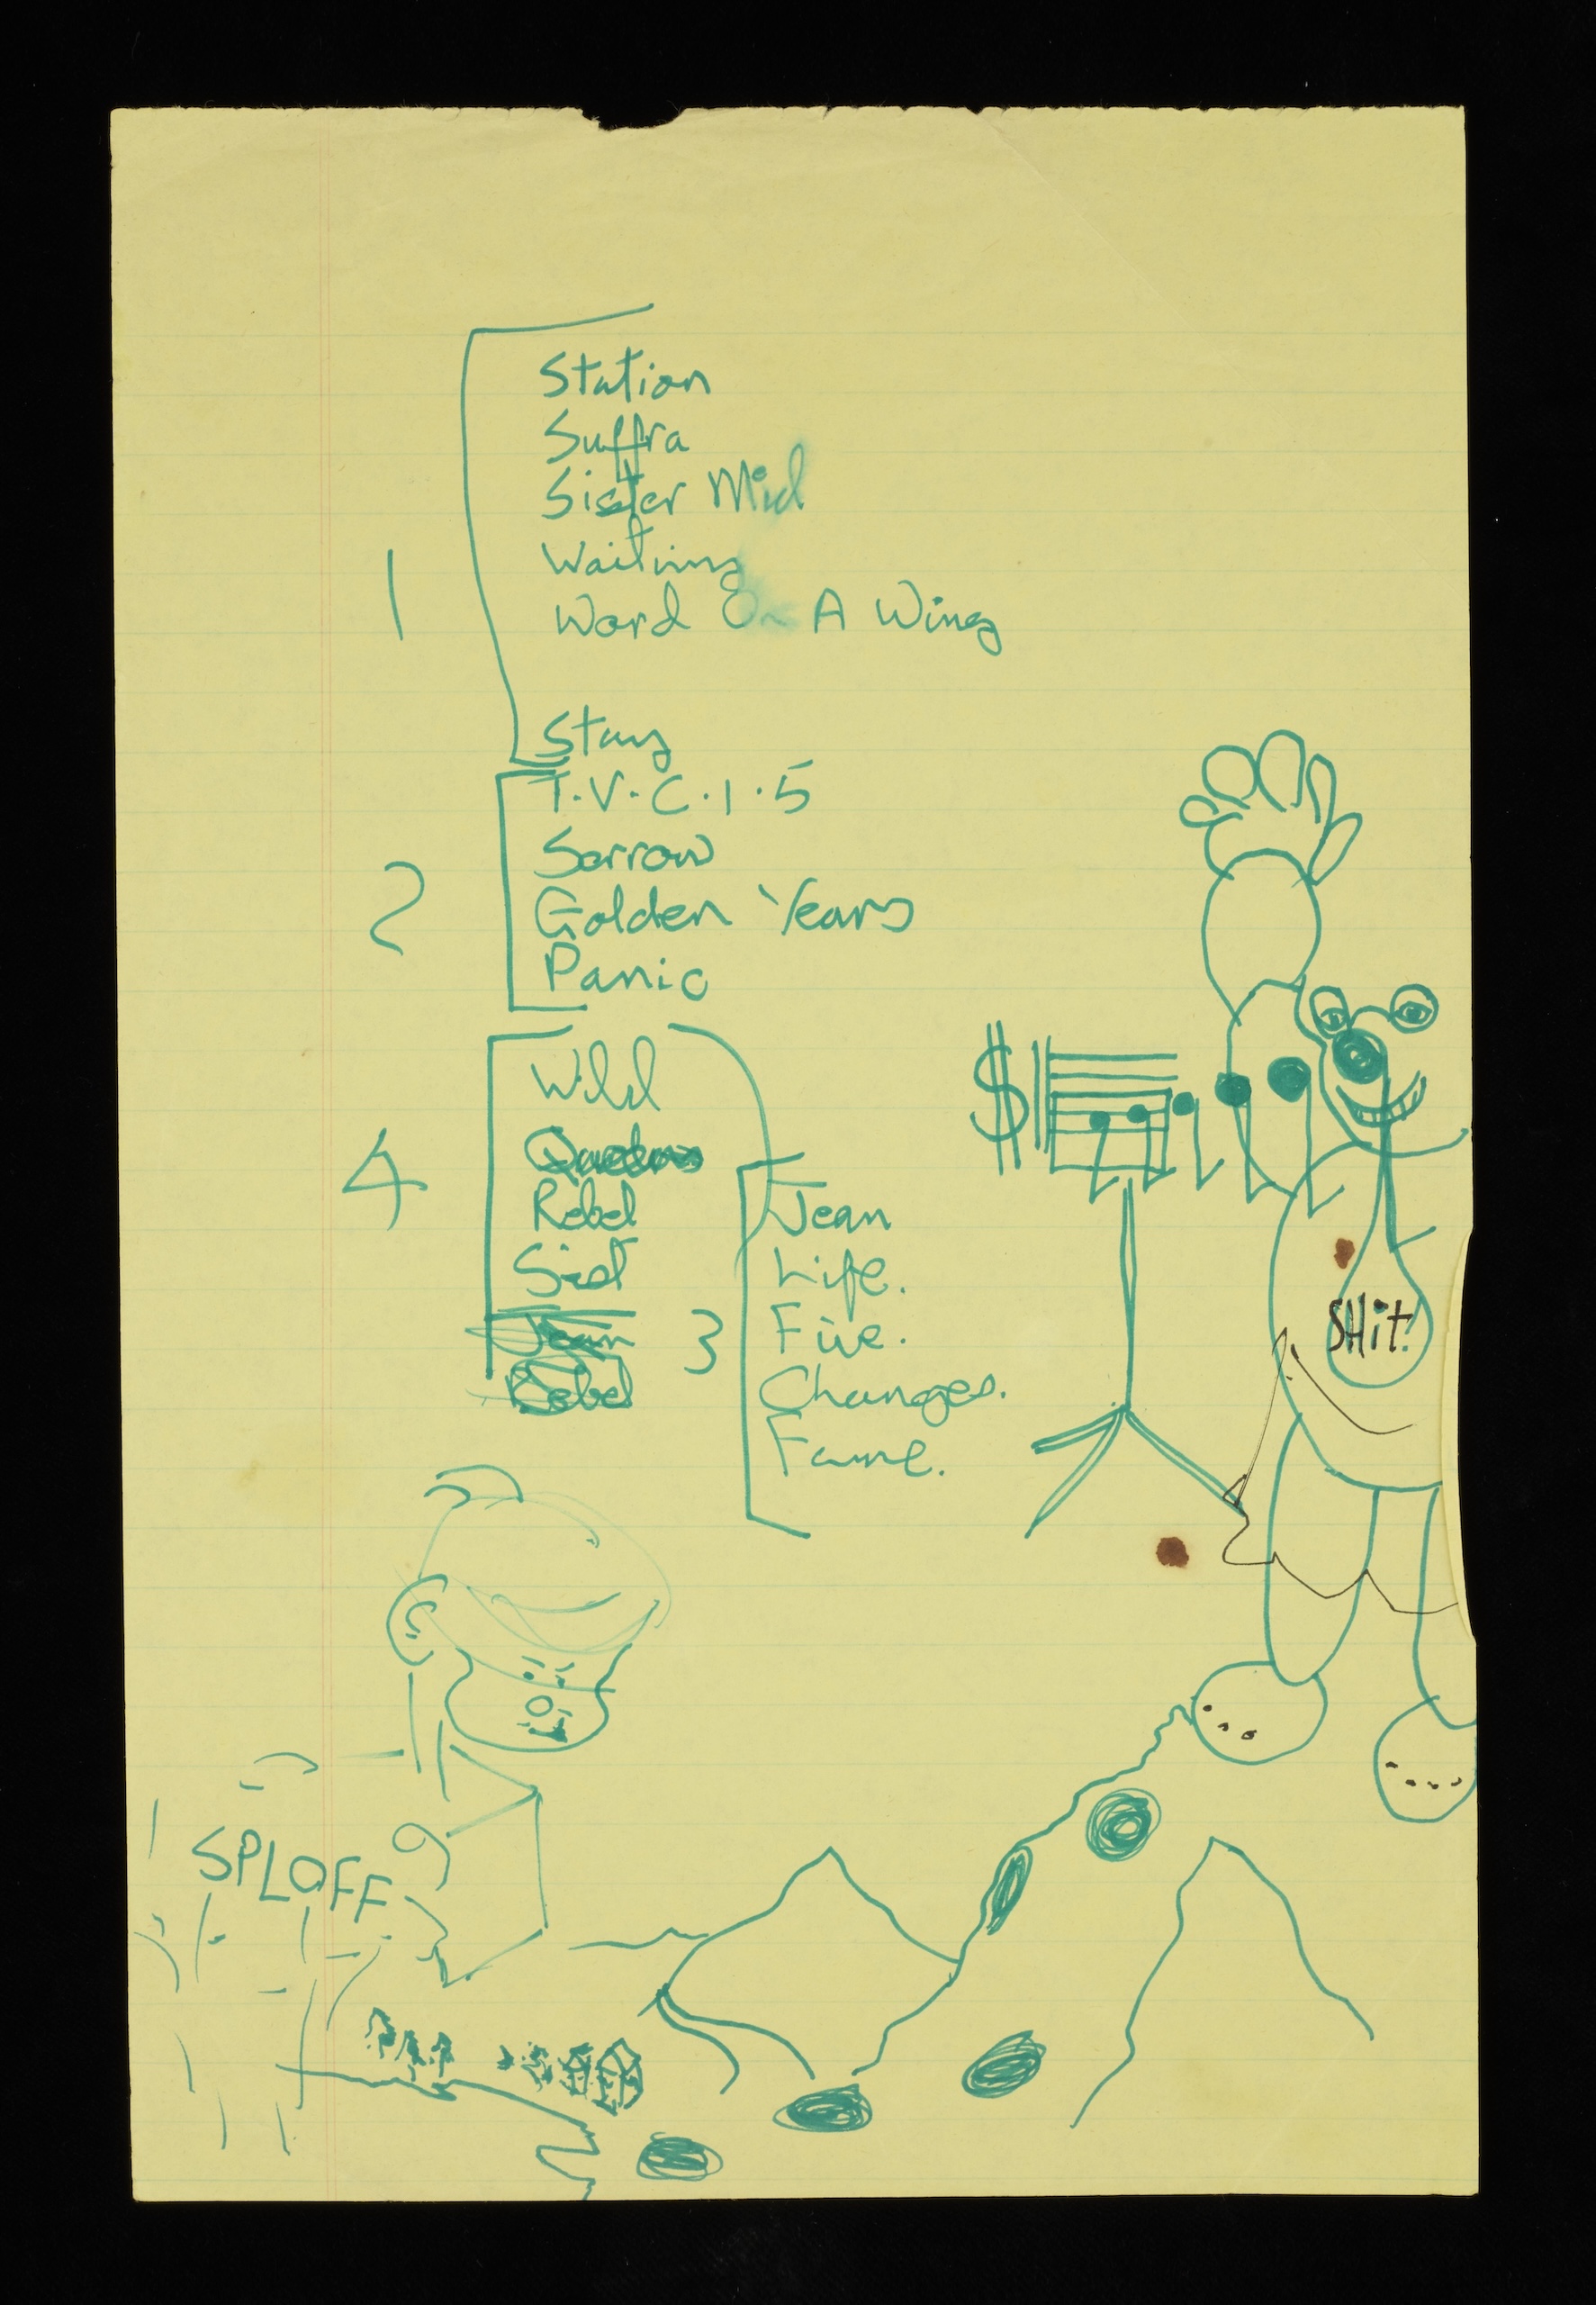 1
Station
Suffra
Sister Mid
Waiting
Word On A Wing
Stay
2
T.V.C.1.5
Sorrow
Golden Years
Panic
4
Wild
Queen
Rebel
Jean
Rebel
3
Jean
Life.
Five.
Changes.
Fame.
$
SHit!
SPLOFF